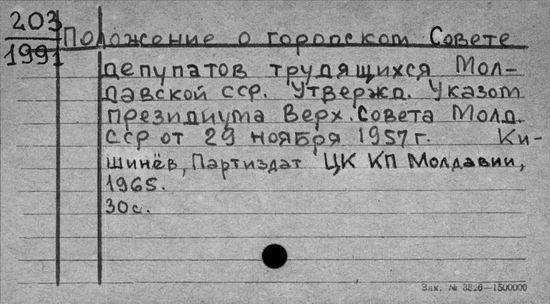 203
1991
Положение о городском Совете
депутатов трудящихся Мол-
давской сср. Утвержд. Указом
президиума Верх. Совета Молд.
сср от 29 ноября 1957г. Ки-
шинёв, Партиздат ЦК КП Молдавии,
1965.
30с.
Зак. № 3826—1500000